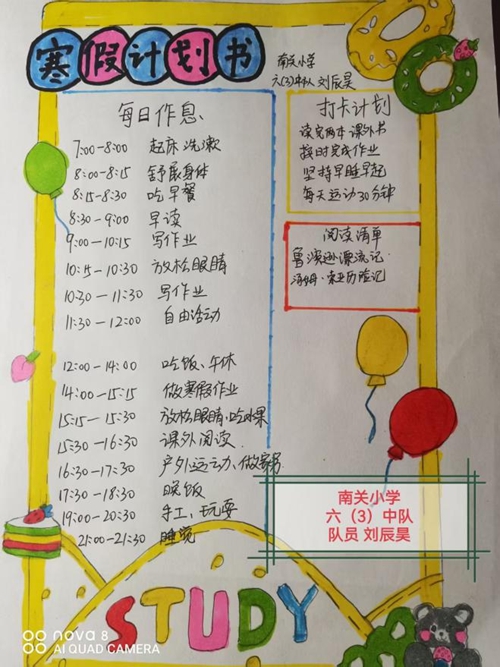 寒假计划书
南关小学
六(3)中队 刘辰昊
每日作息
7:00-8:00 起床洗漱
8:00-8:15 舒展身体
8:15-8:30 吃早餐
8:30-9:00 早读
9:00-10:15 写作业
10:15-10:30 放松眼睛
10:30-11:30 写作业
11:30-12:00 自由活动
12:00-14:00 吃饭、午休
14:00-15:15 做寒假作业
15:15-15:30 放松眼睛、吃水果
15:30-16:30 课外阅读.
16:30-17:30 户外运动、做家务
17:30-18:30 晚饭
19:00-20:30 手工、玩耍
21:00-21:30 睡觉
打卡计划
读完两本课外书
按时完成作业
坚持早睡早起
每天运动30分钟
阅读清单
鲁滨逊漂流记.
汤姆·索亚历险记
南关小学
六（3）中队
队员 刘辰昊
STUDY
nova 8
AI QUAD CAMERA